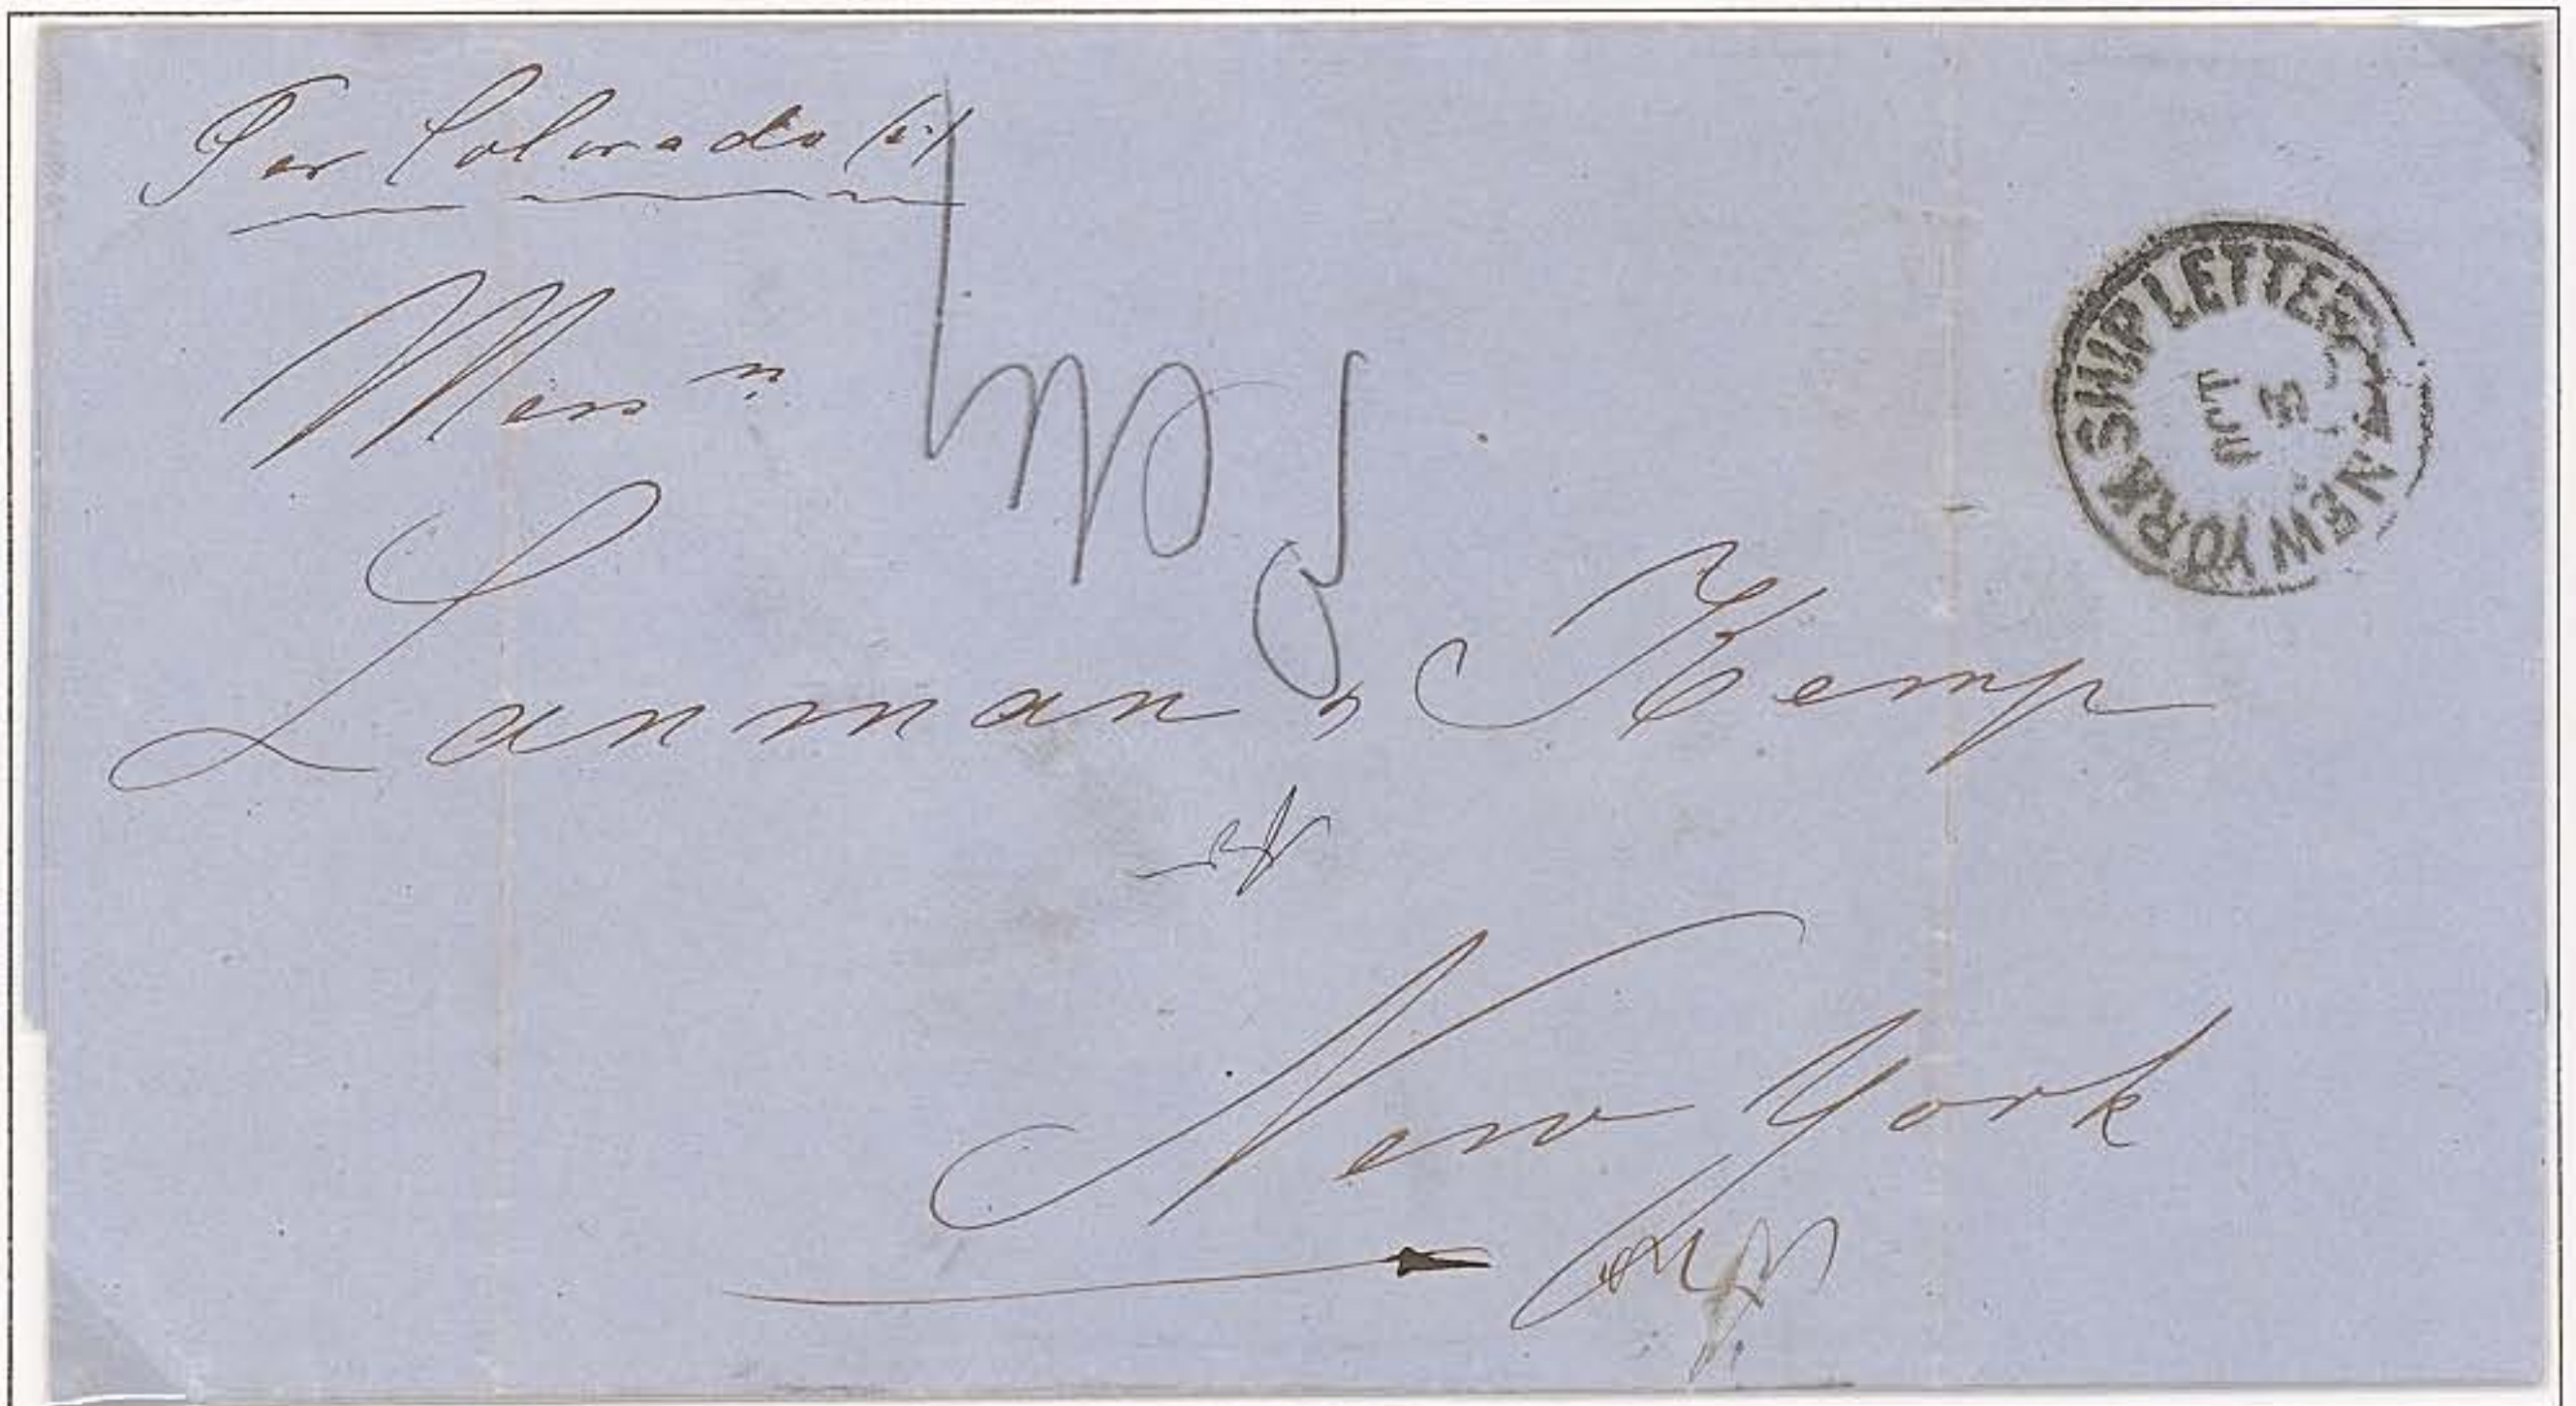 Per Colorado (s)
Mess rs
Lanman & Kemp
New York
NEW YORK SHIP LETTER
OCT
3